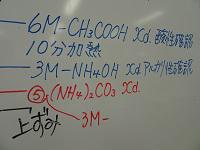 6M-CH₃COOH xd. 酸性確認
10分加熱
3M-NH₄OH xd. アルカリ性確認
⑤(NH₄)₂CO₃ xd.
上ずみ 3M-